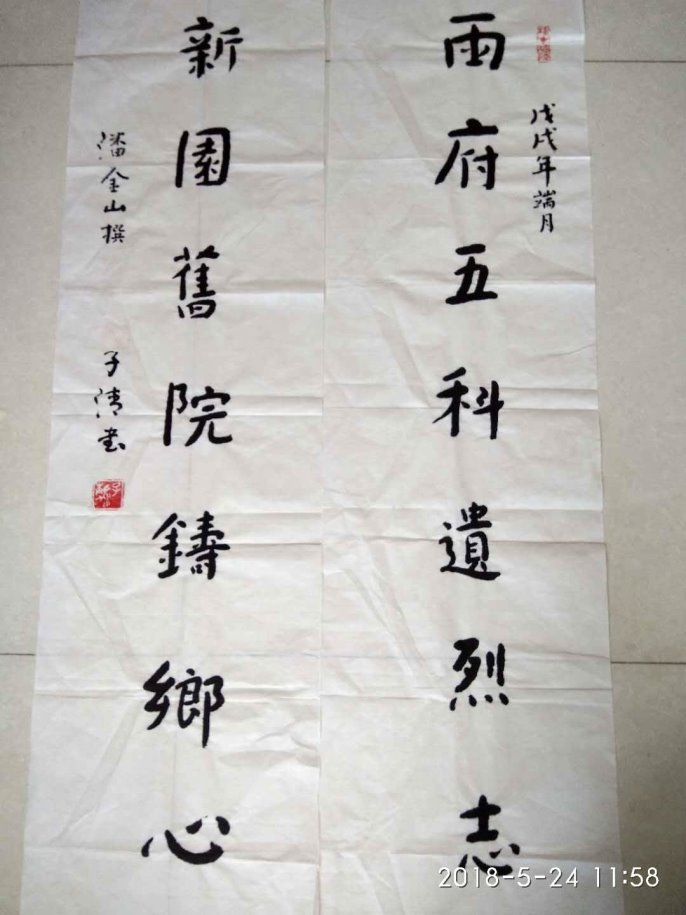 戊戌年端月
両府五科遺烈志
新園舊院鑄鄉心
潘金山撰
子清書
2018-5-24 11:58